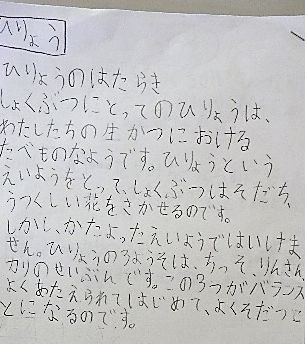 ひりょう
ひりょうのはたらき
しょくぶつにとってのひりょうは、
わたしたちの生かつにおける
たべものなようです。ひりょうという
えいようをとって、しょくぶつはそだち、
うつくしい花をさかせるのです。
しかし、かたよったえいようではいけま
せん。ひりょうの3ようそは、ちっそ、りんさん
カリのせいぶんです。この3つがバランス
よくあたえられてはじめて、よくそだつこ
とになるのです。